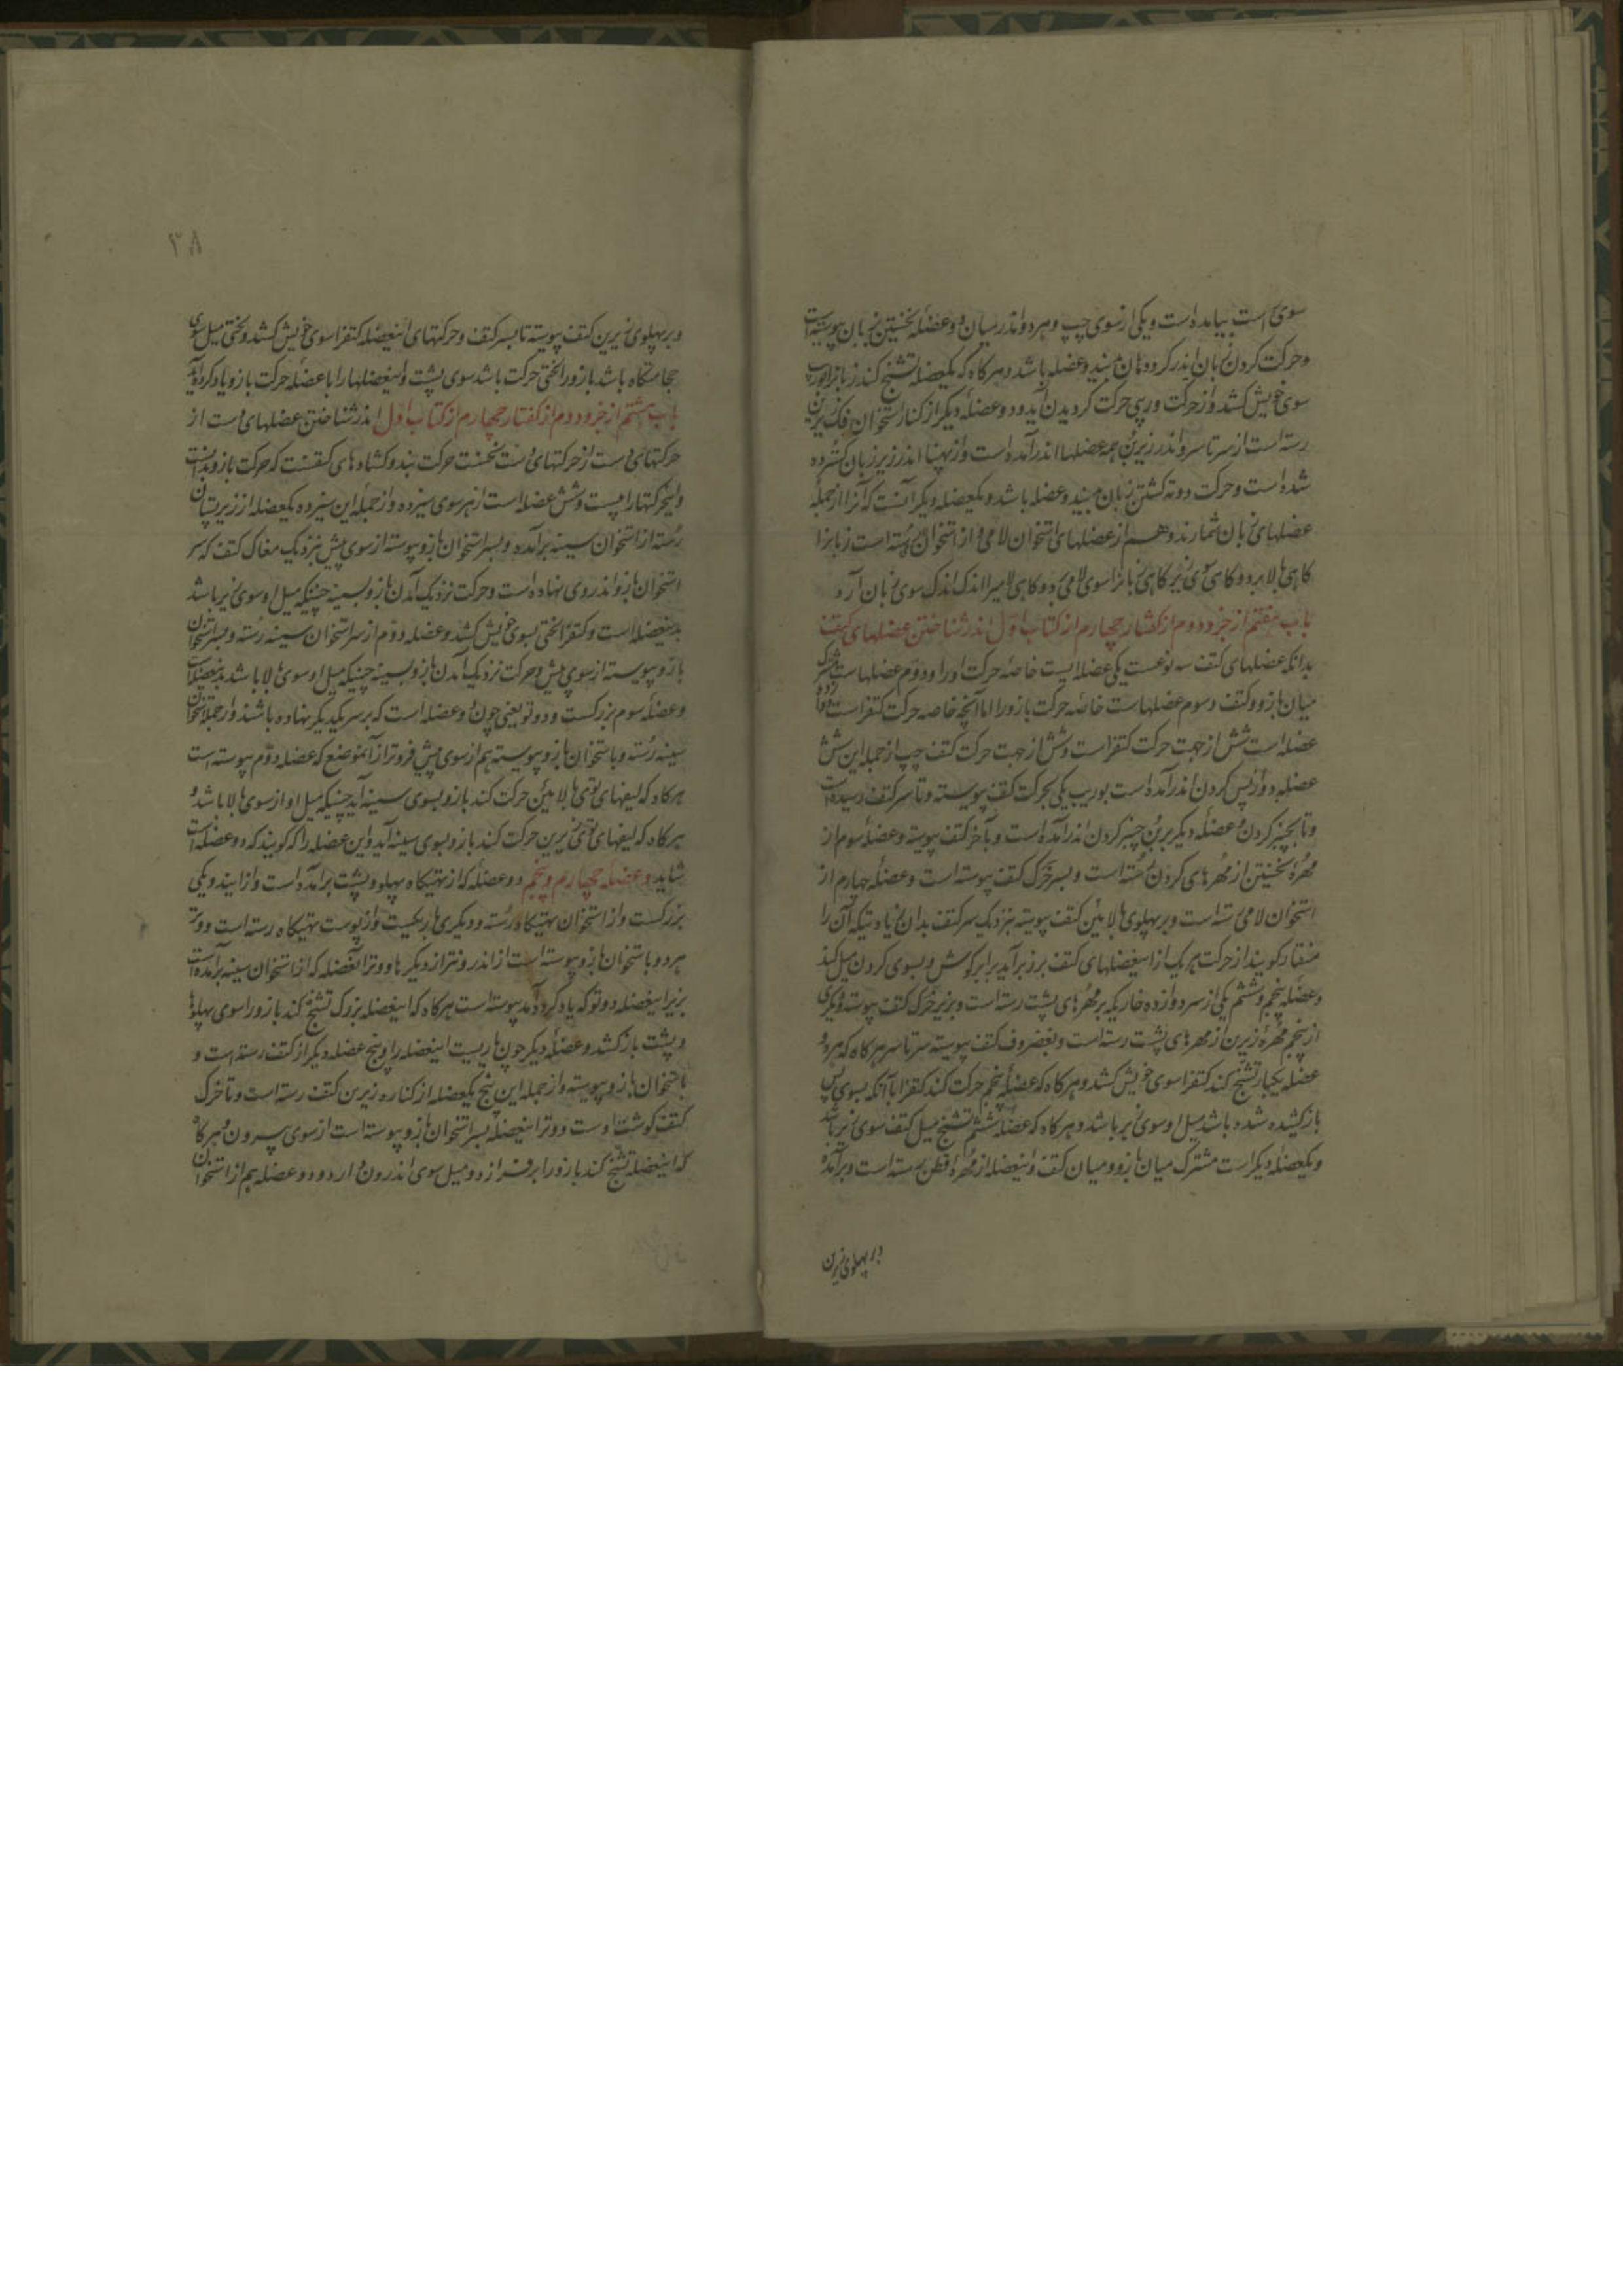 سوی راست بیامده است و یکی از سوی چپ و هر دو اندر میان دو عضله نخستین بزبان پیوسته است
و حرکت کردن زبان اندر گرد دهان بدین دو عضله باشد و هرگاه که یکعضله تشنج کند زبانرا بوریب
سوی خویش کشد و از حرکت وریبی حرکت گردیدن آید و دو عضلهٔ دیگر از کنار استخوان فک زیرین
رسته است از سر تا سر و اندر زیر این همه عضلها اندر آمده است و از پهنا اندر زیر زبان گسترده
شده است و حرکت دوته گشتن زبان بدین دو عضله باشد و یکعضله دیگر آنست که آنرا از جمله
عضلهای زبان شمارند و هم از عضلهای استخوان لامی و از استخوان رسته است زبانرا
گاهی بالا برد و گاهی سوی زیر گاهی زبانرا سوی لامی برد و گاهی لامیرا اندک اندک سوی زبان آرد
باب هفتم از جزو دوم از گفتار چهارم از کتاب اول اندر شناختن عضلهای کتف
بدانکه عضلهای کتف سه نوعست یکی عضلها ایست خاصه حرکت او را و دوم عضلهاست مشترک
میان بازو و کتف و سوم عضلهاست خاصه حرکت بازو را اما آنچه خاصه حرکت کتفراست دوازده
عضله است شش از جهت حرکت کتف راست و شش از جهت حرکت کتف چپ از جمله این شش
عضله دو از پس گردن اندر آمده است بوریب یکی بحرکت کتف پیوسته و تا سر کتف رسیده است
و تا بچنبر گردن و عضلهٔ دیگر برین چنبر گردن اندر آمده است و بآخر کتف پیوسته و عضلهٔ سوم از
مهرهٔ نخستین از مهرهای گردن رسته است و بسر خرک کتف پیوسته است و عضلهٔ چهارم از
استخوان لامی رسته است و بر پهلوی بالائین کتف پیوسته بنزدیک سر کتف بدان زیادتیکه آن را
منقار گویند از حرکت هر یک از اینعضلهای کتف بر زبر آید برابر گوش و بسوی گردن میل کند
و عضله پنجم و ششم یکی از سر دوازده خار یکه بر مهرهای پشت رسته است و بزیر خرک کتف پیوسته و دیگری
از پنجم مهرهٔ زیرین از مهرهای پشت رسته است و بغضروف کتف پیوسته سر تا سر هرگاه که هر دو
عضله یکبار تشنج کند کتفرا سوی خویش کشد و هرگاه که عضلهٔ پنجم حرکت کند کتفرا با آنکه بسوی پس
باز کشیده شده باشد میل او سوی زبر باشد و هرگاه که عضلهٔ ششم تشنج میل کتف سوی زیر باشد
و یکعضلهٔ دیگر است مشترک میان بازو و میان کتف و اینعضله از مهرهٔ قطن رسته است و برآمده
بر پهلوی زیرین
۳۸
و بر پهلوی زیرین کتف پیوسته تا بسر کتف و حرکتهای اینعضله کتفرا سوی خویش کشد و لختی میل سوی
حجامتگاه باشد بازو را لختی حرکت باشد سوی پشت و اینعضلها را با عضلهٔ حرکت بازو یاد کرده آید
باب هشتم از جزو دوم از گفتار چهارم از کتاب اول اندر شناختن عضلهای دست از
حرکتهای دست از حرکتهای دست نخست حرکت بند و گشادهای کتفست که حرکت بازو بدانست
و اینحرکتها را بیست و شش عضله است از هر سوی سیزده و از جملهٔ این سیزده یکعضله از زیر پستان
رسته از استخوان سینه برآمده و بسر استخوان بازو پیوسته از سوی پیش بنزدیک مغاک کتف که سر
استخوان بازو اندر وی نهاده است و حرکت نزدیک آمدن بازو بسینه چنینکه میل او سوی زیر باشد
بدینعضله است و کتفرا لختی بسوی خویش کشد و عضله دوم از سر استخوان سینه رسته و بسر استخوان
بازو پیوسته از سوی پیش و حرکت نزدیک آمدن بازو بسینه چنینکه میل او سوی بالا باشد بدینعضله است
و عضلهٔ سوم بزرگست و دو تو یعنی چون دو عضله است که بر سر یکدیگر نهاده باشند و از جمله استخوان
سینه رسته و باستخوان بازو پیوسته هم از سوی پیش فروتر از آنموضع که عضله دوم پیوسته است
هرگاه که لیفهای توی بالائین حرکت کند بازو بسوی سینه آید چنینکه میل او از سوی بالا باشد و
هرگاه که لیفهای توی زیرین حرکت کند بازو بسوی سینه آید و این عضله را که گویند که دو عضله است
شاید و عضله چهارم و پنجم دو عضله که از تهیگاه پهلو و پشت برآمده است و از ایند و یکی
بزرگست و از استخوان تهیگاه رسته و دیگری باریکیست و از پوست تهیگاه رسته است و وتر
هر دو باستخوان بازو پیوسته است از اندرونتر از دیگرها و وتر آنعضله که از استخوان سینه برآمده است
بزیر اینعضله دوتو که یاد کرده آمد پیوسته است هرگاه که اینعضله بزرگ تشنج کند بازو را سوی پهلوها
و پشت باز کشد و عضلهٔ دیگر چون یاریست اینعضله را و پنج عضله دیگر از کتف رسته است و
باستخوان بازو پیوسته و از جمله این پنج یکعضله از کناره زیرین کتف رسته است و تا خرک
کتف گوشت اوست و وتر اینعضله بسر استخوان بازو پیوسته است از سوی بیرون و هرگاه
که اینعضله تشنج کند بازو را برفرازد و میل سوی اندرون دارد و دو عضله هم از استخوان